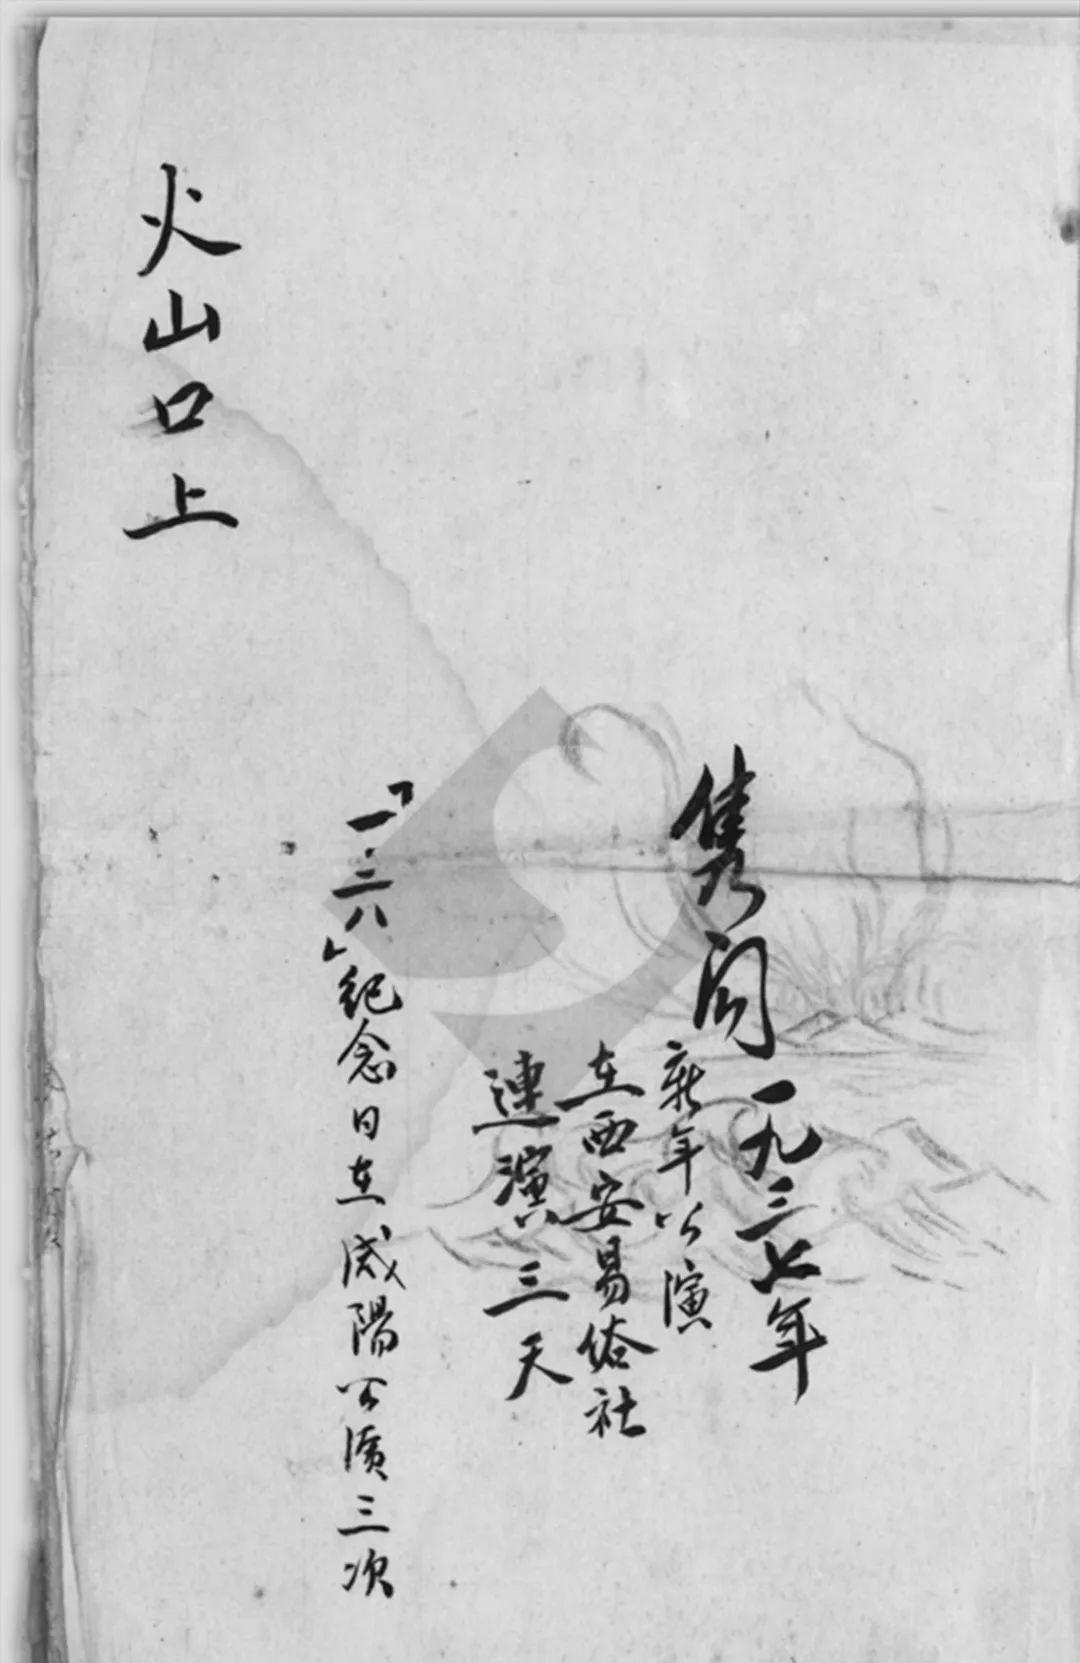 隽 一九三七年
新年公演
在西安易俗社
連演三天
「一·二八」紀念日在咸陽公演三次
火山口上